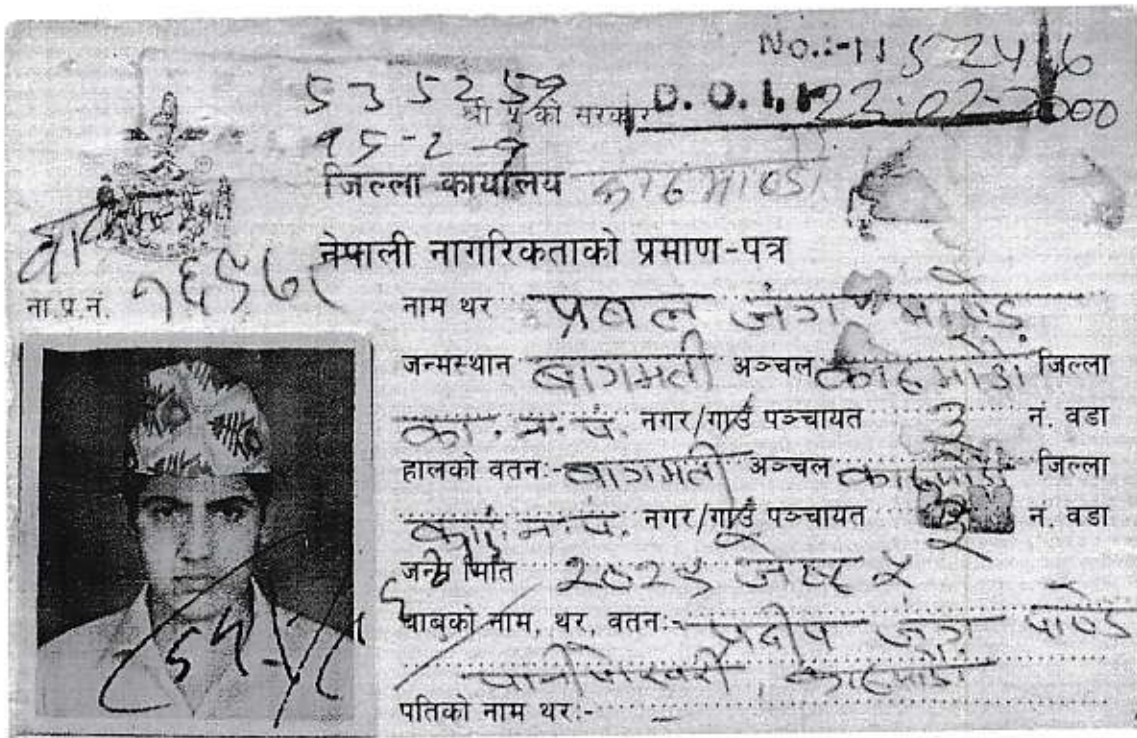 No.:-115 2416
5 3 5 2 5
श्री ५ को सरकार D.O.I. 23-02-2000
जिल्ला कार्यालय काठमाण्डौ
नेपाली नागरिकताको प्रमाण-पत्र
ना.प्र.नं.
नाम थर प्रबल जंग पाण्डे
जन्मस्थान बागमती अञ्चल काठमाडौं जिल्ला
का. न. पं. नगर/गाउँ पञ्चायत ३ नं. वडा
हालको वतन:- बागमती अञ्चल काठमाडौं जिल्ला
का. न. पं. नगर/गाउँ पञ्चायत नं. वडा
जन्म मिति जेष्ठ ५
बाबुको नाम, थर, वतन:- प्रदीप जंग पाण्डे
पानीपोखरी, काठमाडौं
पतिको नाम थर:- –